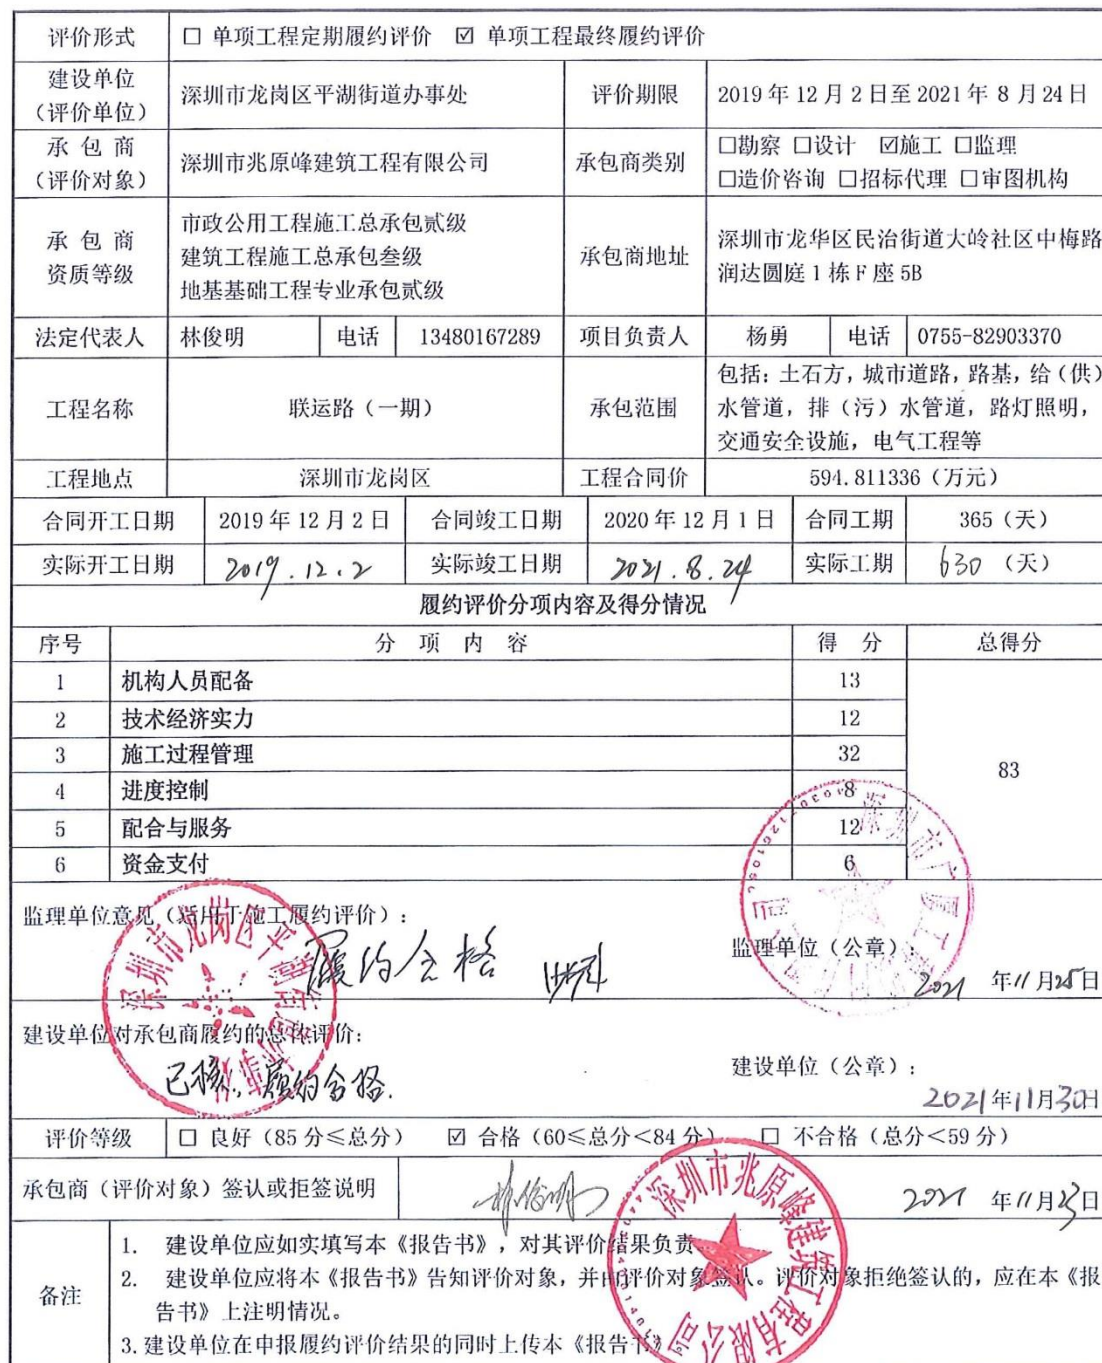 评价形式 □ 单项工程定期履约评价 ☑ 单项工程最终履约评价
建设单位
(评价单位)
深圳市龙岗区平湖街道办事处
评价期限
2019年12月2日至2021年8月24日
承包商
(评价对象)
深圳市兆原峰建筑工程有限公司
承包商类别
□勘察 □设计 ☑施工 □监理
□造价咨询 □招标代理 □审图机构
承包商
资质等级
市政公用工程施工总承包贰级
建筑工程施工总承包叁级
地基基础工程专业承包贰级
承包商地址
深圳市龙华区民治街道大岭社区中梅路
润达圆庭1栋F座5B
法定代表人 林俊明 电话 13480167289 项目负责人 杨勇 电话 0755-82903370
工程名称 联运路(一期) 承包范围
包括:土石方,城市道路,路基,给(供)
水管道,排(污)水管道,路灯照明,
交通安全设施,电气工程等
工程地点 深圳市龙岗区 工程合同价 594.811336(万元)
合同开工日期 2019年12月2日 合同竣工日期 2020年12月1日 合同工期 365(天)
实际开工日期 2019.12.2 实际竣工日期 2021.8.24 实际工期 630(天)
履约评价分项内容及得分情况
序号 分项内容 得分 总得分
1 机构人员配备 13
2 技术经济实力 12
3 施工过程管理 32
83
4 进度控制 8
5 配合与服务 12
6 资金支付 6
监理单位意见(适用于施工履约评价):
履约合格
监理单位(公章):
2021年11月25日
建设单位对承包商履约的总体评价:
已核,履约合格.
建设单位(公章):
2021年11月30日
评价等级 □ 良好(85分≤总分) ☑ 合格(60≤总分<84分) □ 不合格(总分<59分)
承包商(评价对象)签认或拒签说明 林俊明 2021年11月23日
备注
1. 建设单位应如实填写本《报告书》,对其评价结果负责
2. 建设单位应将本《报告书》告知评价对象,并由评价对象签认。评价对象拒绝签认的,应在本《报
告书》上注明情况。
3.建设单位在申报履约评价结果的同时上传本《报告书》
深圳市兆原峰建筑工程有限公司